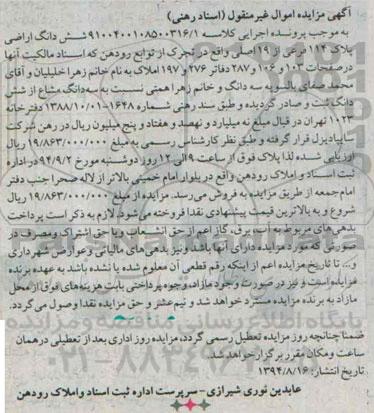 آگهی مزایده اموال غیرمنقول (اسناد رهنی)
به موجب پرونده اجرایی کلاسه ۹۱۰۰۴۰۰۱۰۸۵۰۰۳۱۶/۱ شش دانگ اراضی
پلاک ۱۱۴ فرعی از ۱۹ اصلی واقع در تجرک از توابع رودهن که اسناد مالکیت آنها
در صفحات ۱۰۳ و ۱۰۶ و ۲۸۷ دفاتر ۲۷۶ و ۱۹۷ املاک به نام خانم زهرا خلیلیان و آقای
محمد صفای بالسویه سه دانگ و خانم زهرا همتی نسبت به سه دانگ مشاع از شش
دانگ ثبت و صادر گردیده و طبق سند رهنی شماره ۱۶۴۸-۱۳۸۸/۱۰/۰۱ دفترخانه
۱۰۲۳ تهران در قبال مبلغ نه میلیارد و نهصد و هفتاد و پنج میلیون ریال در رهن شرکت
سایپا دیزل قرار گرفته و طبق نظر کارشناس رسمی به مبلغ ۱۹/۸۶۳/۰۰۰/۰۰۰ ریال
ارزیابی شده لذا پلاک فوق از ساعت ۹ الی ۱۲ روز دوشنبه مورخ ۹۴/۹/۲ در اداره
ثبت اسناد و املاک رودهن واقع در بلوار امام خمینی بالاتر از لاله صحرا جنب دفتر
امام جمعه از طریق مزایده به فروش می‌رسد. مزایده از مبلغ ۱۹/۸۶۳/۰۰۰/۰۰۰ ریال
شروع و به بالاترین قیمت پیشنهادی نقدا فروخته می‌شود. لازم به ذکر است پرداخت
بدهی‌های مربوط به آب، برق، گاز اعم از حق انشعاب و یا حق اشتراک و مصرف در
صورتی که مورد مزایده دارای آنها باشد و نیز بدهی‌های مالیاتی و عوارض شهرداری
و... تا تاریخ مزایده اعم از اینکه رقم قطعی آن معلوم شده یا نشده باشد به عهده برنده
مزایده است و نیز در صورت وجود مازاد، وجوه پرداختی بابت هزینه‌های فوق از محل
مازاد به برنده مزایده مسترد خواهد شد و نیم عشر و حق مزایده نقدا وصول می‌گردد.
ضمنا چنانچه روز مزایده تعطیل رسمی گردد، مزایده روز اداری بعد از تعطیلی در همان
ساعت و مکان مقرر برگزار خواهد شد.
تاریخ انتشار: ۱۳۹۴/۸/۱۶
عابدین نوری شیرازی - سرپرست اداره ثبت اسناد و املاک رودهن